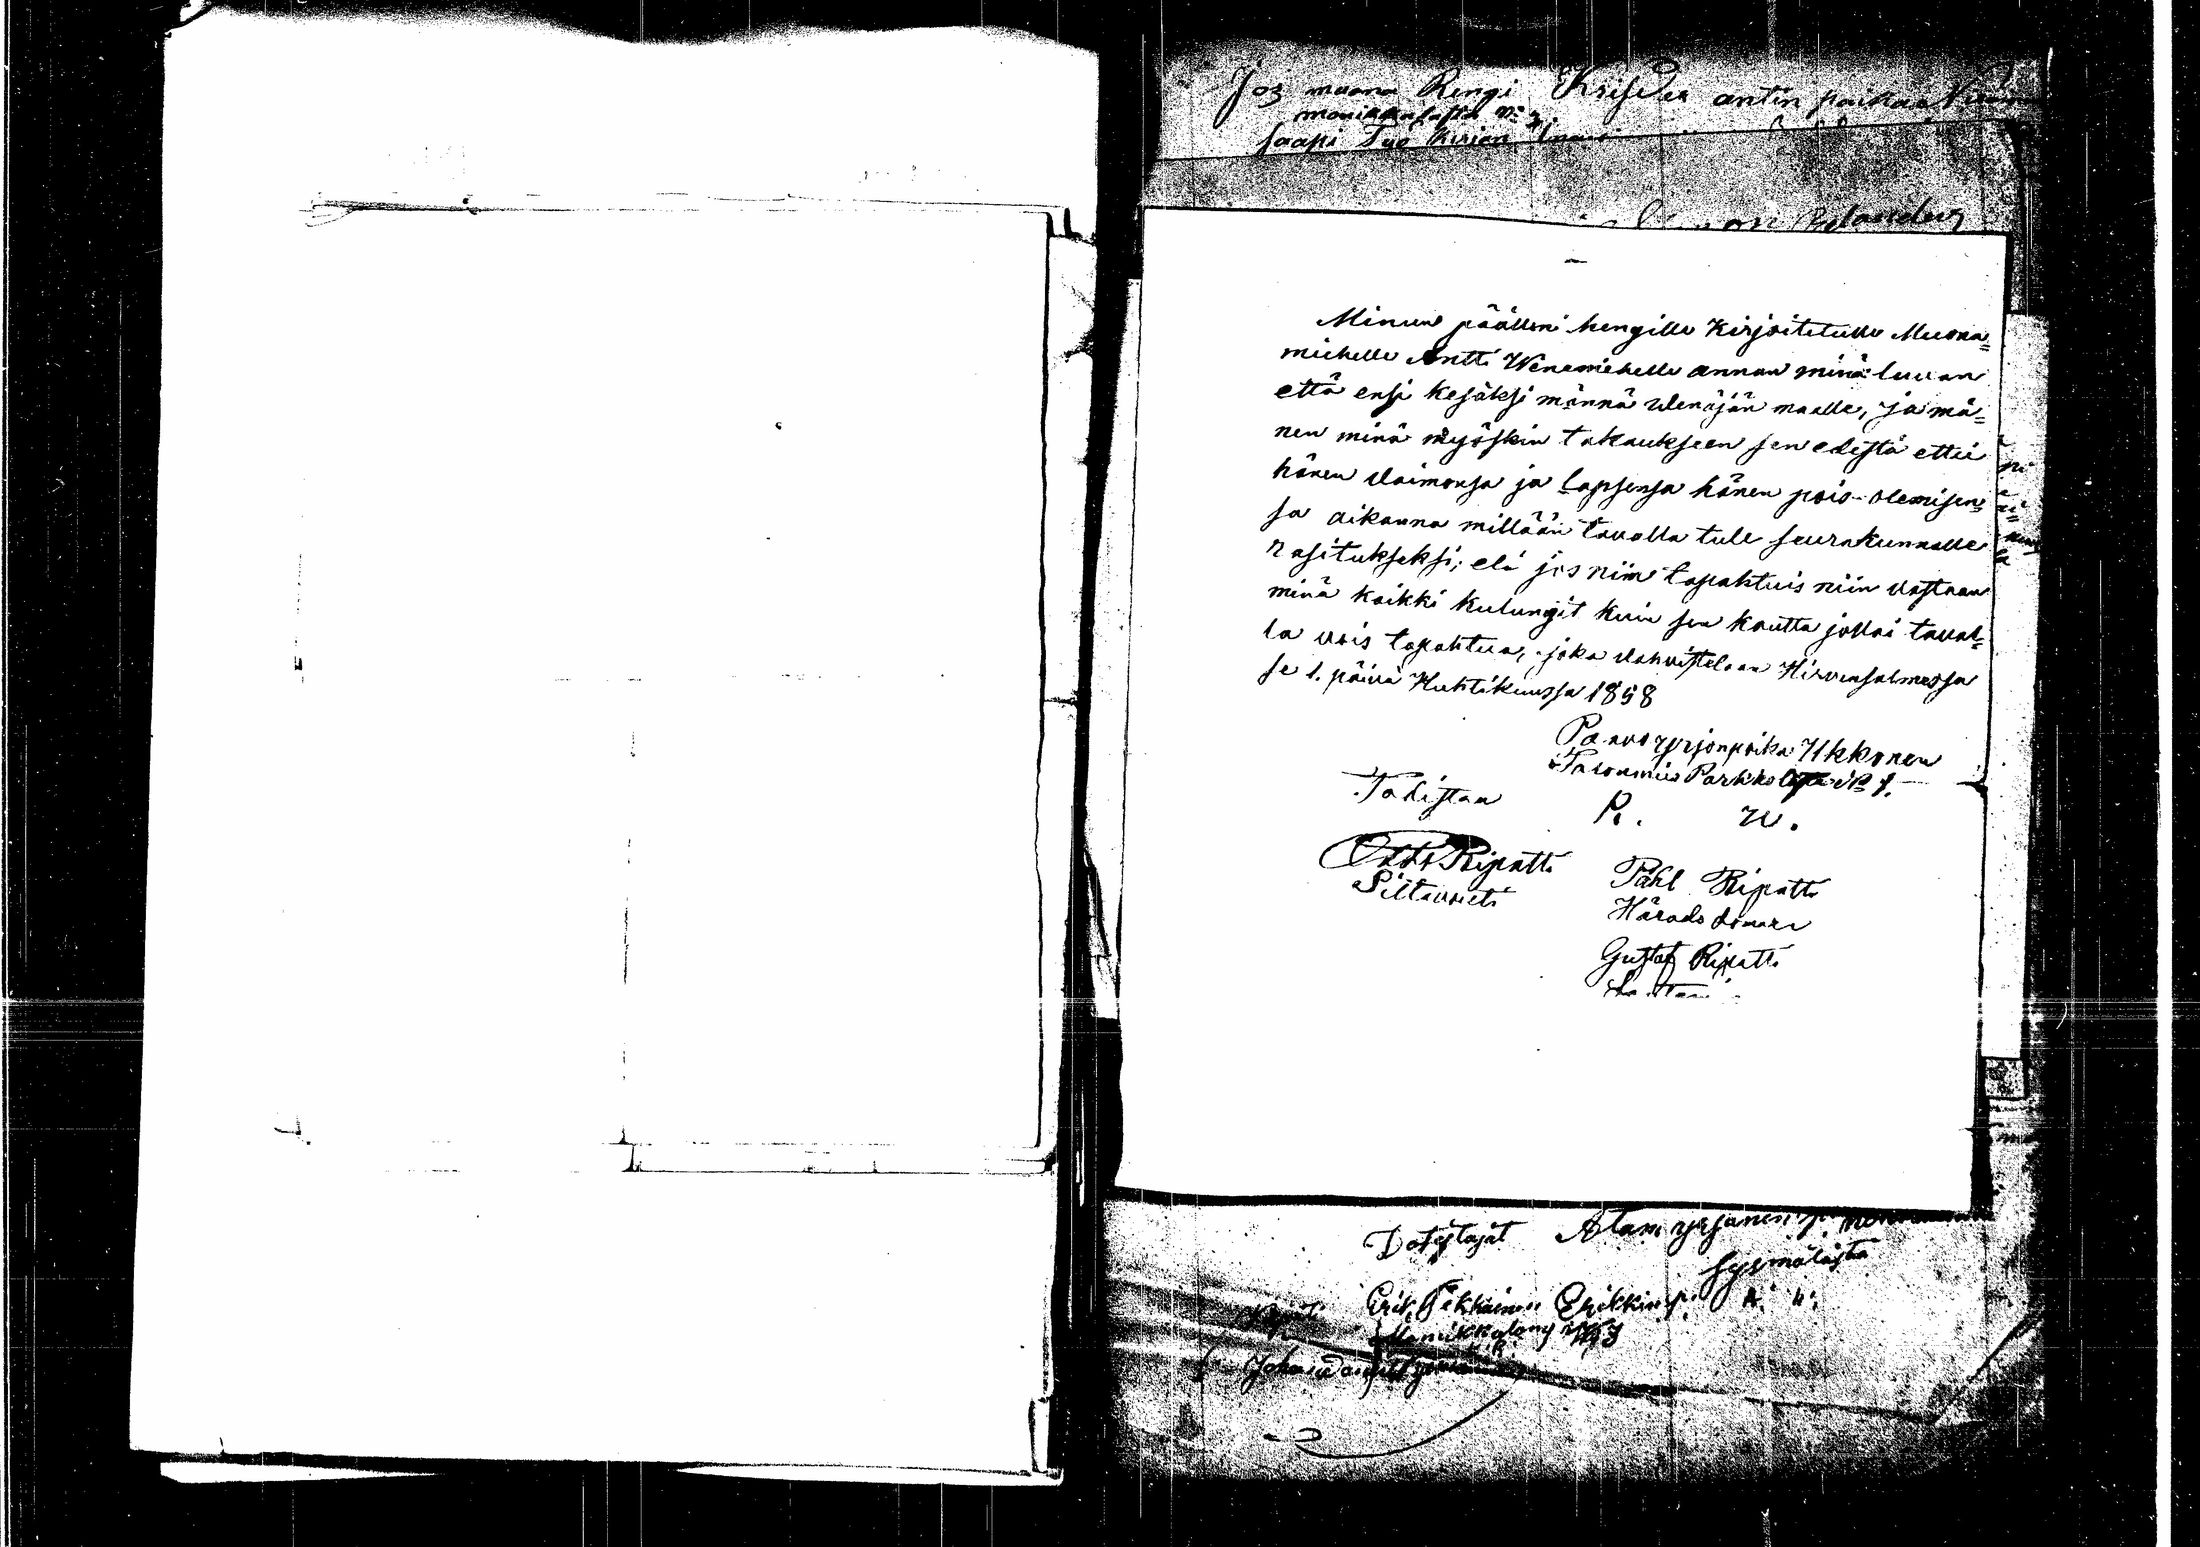 Jos muona Rengi Krister antin paikaa
monikkalasta No 3.
saapi Työ Kirian
Minun päälleni hengille Kirjoitetulle Muona=
miehelle Antti Wenemiehelle annan minä luvan
että ensi kesäksi männä Wenäjän maalle, ja mä=
nen minä myöskin takaukseen sen edestä ettei
hänen vaimonsa ja lapsensa hänen pois-olemisen=
sa aikanna millään tavalla tule seurakunnalle
rasitukseksi; eli jos niin tapahtuis niin vastaan
minä kaikki kulungit kuin sen kautta jollai taval=
la vois tapahtua, joka vahvistetaan Hirvensalmessa
se 1. päivä Huhtikuussa 1858
Paavo yrjonpoika Ukkonen
Talonmies Parkkolasta No 1.
Todistaa
P. U.
Otto Ripatti
Siltavouti
Påhl Ripatti
Härads domare
Gustaf Ripatti
Dotistajat
Atam yrjänen p.
Sysmälästä
Erik Erikkin p.
Monikkalasta No 3
Johan